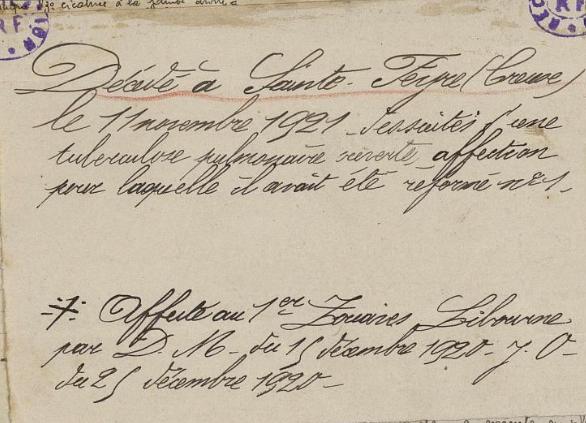 cicatrice à la jambe droite
Décédé à Sainte-Feyre (Creuse)
le 11 novembre 1921 des suites d'une
tuberculose pulmonaire ouverte, affection
pour laquelle il avait été réformé n° 1 -
Affecté au 1er Zouaves Libourne
par D. M - du 15 décembre 1920 - J. O -
du 25 décembre 1920 -